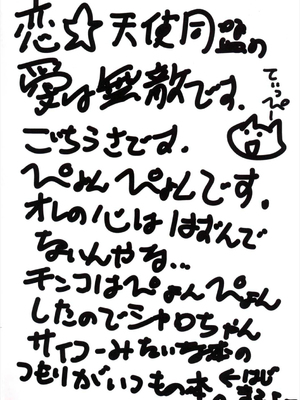 恋☆天使同盟の
愛は無敵です.
てぃっぴー
ごちうさです.
ぴょんぴょんです.
オレの心ははずんで
ないんやな…
チンコはぴょんぴょん
したのでシャロちゃん
サイコーみたいな本の
つもりがいつもの本
←はじ